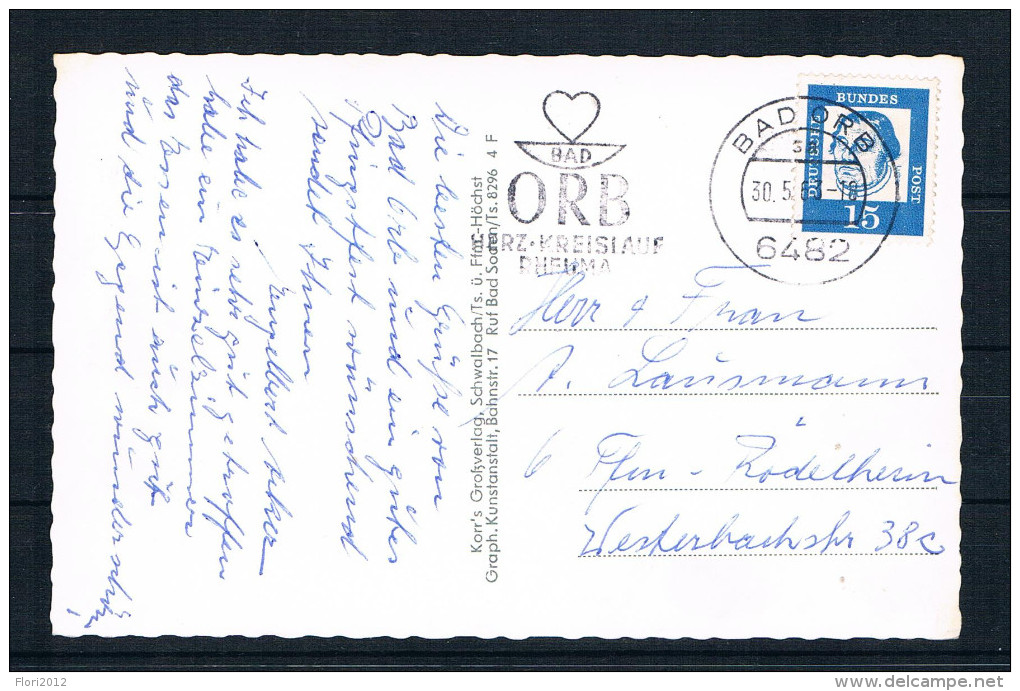 Die besten Grüße von
Bad Orb und ein gutes
Pfingstfest wünschend
sendet Ihnen
Engelbert
Ich habe es sehr gut getroffen
habe ein Einzelzimmer
das Essen ist auch gut
und die Gegend wunderschön!
Korr's Großverlag, Schwalbach/Ts. ü. Ffm.-Höchst
Graph. Kunstanstalt, Bahnstr. 17 Ruf Bad Soden/Ts. 8296 4 F
BAD
ORB
HERZ·KREISLAUF
RHEUMA
BAD ORB
30.5.6 -18
6482
DEUTSCHE
BUNDES
POST
15
Herr & Frau
A. Lausmann
6 Ffm - Rödelheim
Westerbachstr 38c
Flori2012